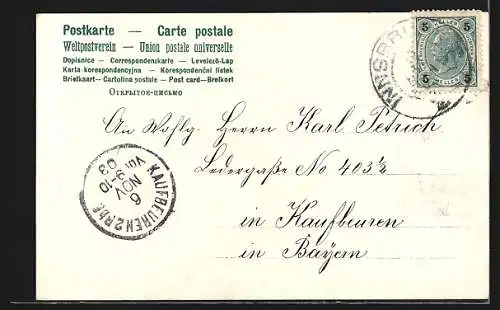 Postkarte — Carte postale
Weltpostverein — Union postale universelle
Dopisnice — Correspondenzkarte — Levelező-Lap
Karta korespondencyjna — Korespondenční listek
Briefkaart — Cartolina postale — Post card — Brefkort
Открытое письмо
INNSBRU
5 5
An Wohlg. Herrn Karl Petrich
Ledergaße No 403½
in Kaufbeuren
in Bayern
KAUFBEUREN 2
6
NOV
9-10
Vm
03